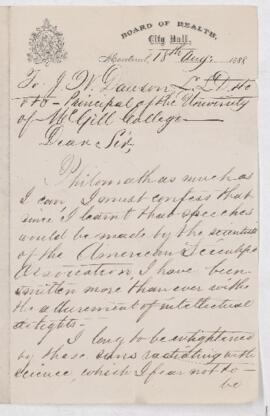 BOARD OF HEALTH.
City Hall,
Montreal, 18th Aug. 1882
To J. W. Dawson L.L.D. etc
etc – Principal of the University
of McGill College –
Dear Sir,
Philomath as much as
I can, I must confess that
since I learnt that speeches
would be made by the scientists
of the American Scientific
Association I have been
smitten more than ever with
the allurement of intellectual
delights –
I long to be enlightened
by those suns radiating with
science, which I fear not to
be